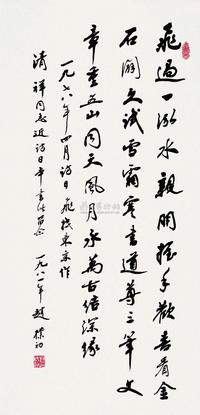 飛過一泓水親朋握手歡喜看金
石潤久試雪霜寒書道尊三筆文
章重五山同天風月永萬古結深緣
一九七八年四月訪日飛機東京作
清祥同志追訪日本書此留念 一九八一年 趙樸初